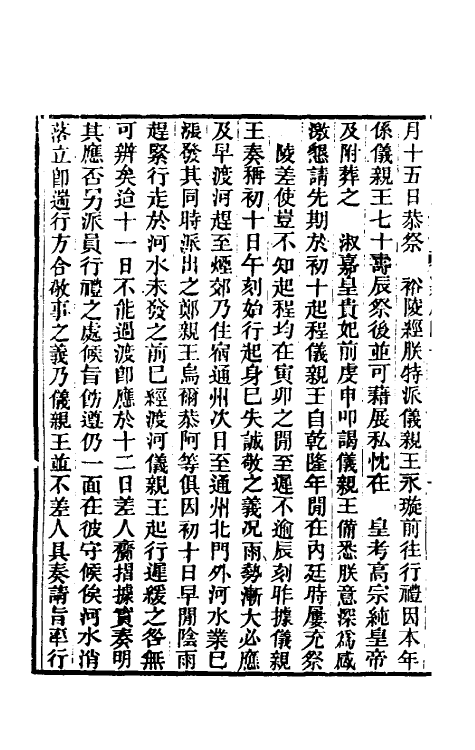 月十五日恭祭　裕陵經朕特派儀親王永璇前往行禮因本年
係儀親王七十壽辰祭後並可藉展私忱在　皇考高宗純皇帝
及附葬之　淑嘉皇貴妃前虔申叩謁儀親王備悉朕意深爲感
激懇請先期於初十起程儀親王自乾隆年閒在內廷時屢充祭
陵差使豈不知起程均在寅卯之閒至遲不逾辰刻昨據儀親
王奏稱初十日午刻始行起身已失誠敬之義况雨勢漸大必應
及早渡河趕至烟郊乃住宿通州次日至通州北門外河水業已
漲發其同時派出之鄭親王烏爾恭阿等俱因初十日早閒陰雨
趕緊行走於河水未發之前已經渡河儀親王起行遲緩之咎無
可辨矣迨十一日不能過渡卽應於十二日差人齎摺據實奏明
其應否另派員行禮之處候旨飭遵仍一面在彼守候俟河水消
落立卽遄行方合敬事之義乃儀親王並不差人具奏請旨率行